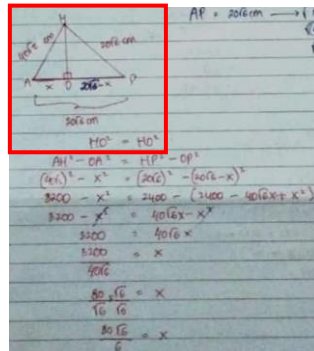 AP = 20√6 cm →
H
40√2 cm
20√6 cm
A
x
O
20√6 - x
P
20√6 cm
HO² = HO²
AH² - OA² = HP² - OP²
- x² = (20√6)² - (20√6-x)²
3200 - x² = 2400 - (2400 - 40√6x + x²)
3200 - x² = 40√6x - x²
3200 = 40√6 x
3200 = x
40√6
80 . √6 = x
√6 √6
80√6 = x
6